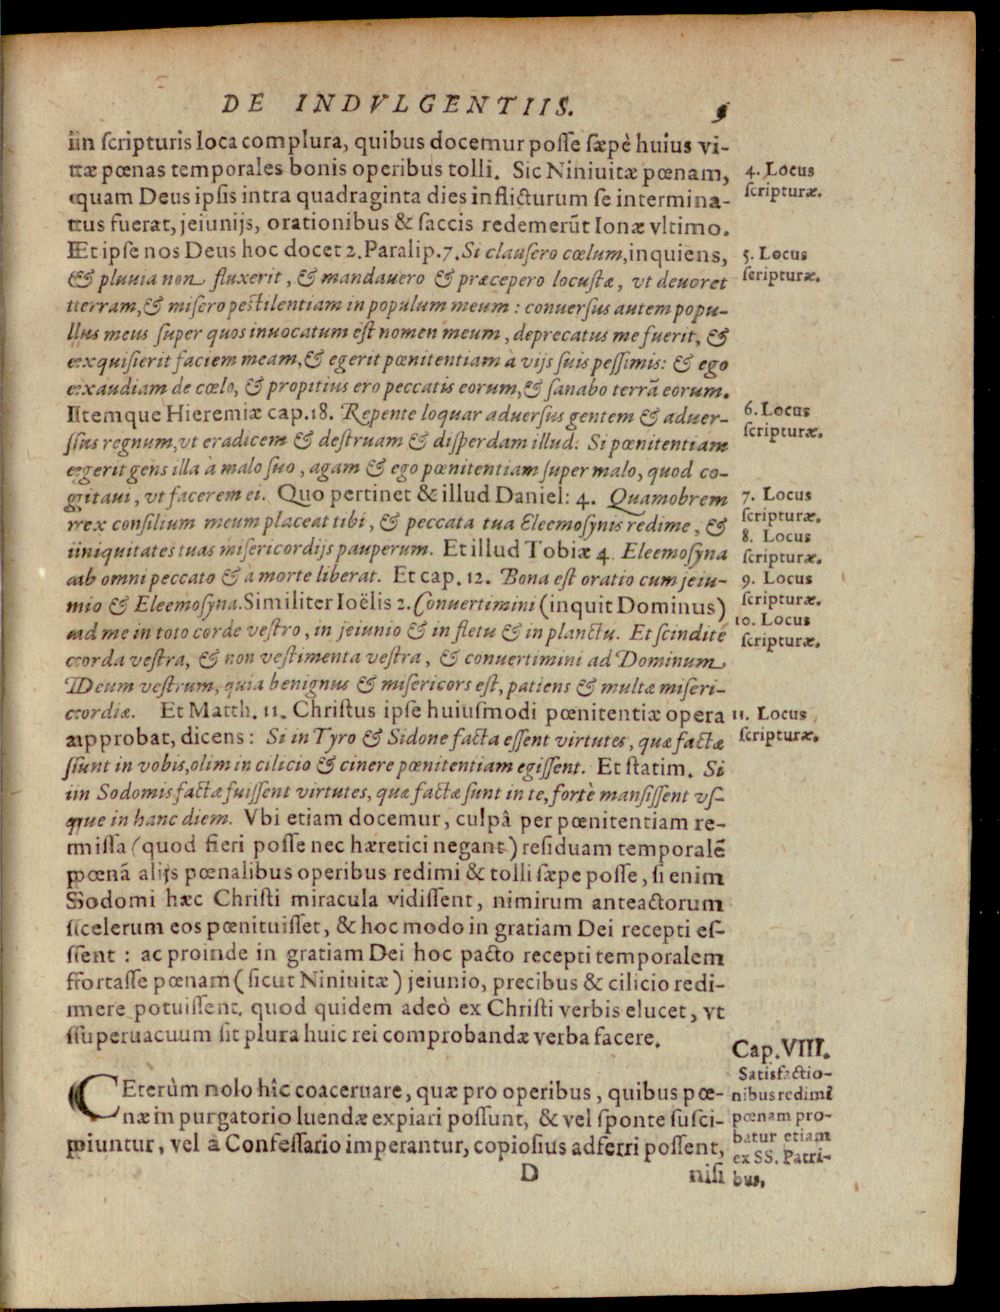 DE INDVLGENTIIS. 9
in scripturis loca complura, quibus docemur posse sæpè huius vi-
tæ pœnas temporales bonis operibus tolli. Sic Niniuitæ pœnam,
quam Deus ipsis intra quadraginta dies inflicturum se intermina-
tus fuerat, jeiunijs, orationibus & saccis redemerũt Ionæ vltimo.
Et ipse nos Deus hoc docet 2. Paralip. 7. Si clausero cœlum, inquiens,
& pluuia non fluxerit, & mandauero & præcepero locustæ, vt deuoret
terram, & misero pestilentiam in populum meum : conuersus autem popu-
lus meus super quos inuocatum est nomen meum, deprecatus me fuerit, &
exquisierit faciem meam, & egerit pœnitentiam à vijs suis pessimis: & ego
exaudiam de cœlo, & propitius ero peccatis eorum, & sanabo terrã eorum.
Itemque Hieremiæ cap. 18. Repente loquar aduersus gentem & aduer-
sus regnum, vt eradicem & destruam & disperdam illud. Si pœnitentiam
egerit gens illa à malo suo, agam & ego pœnitentiam super malo, quod co-
gitaui, vt facerem ei. Quo pertinet & illud Daniel: 4. Quamobrem
rex consilium meum placeat tibi, & peccata tua Eleemosynis redime, &
iniquitates tuas misericordijs pauperum. Et illud Tobiæ 4. Eleemosyna
ab omni peccato & à morte liberat. Et cap. 12. Bona est oratio cum jeiu-
nio & Eleemosyna. Similiter Ioëlis 2. Conuertimini (inquit Dominus)
ad me in toto corde vestro, in jeiunio & in fletu & in planctu. Et scindite
corda vestra, & non vestimenta vestra, & conuertimini ad Dominum
Deum vestrum, quia benignus & misericors est, patiens & multæ miseri-
cordiæ. Et Matth. 11. Christus ipse huiusmodi pœnitentiæ opera
approbat, dicens : Si in Tyro & Sidone facta essent virtutes, quæ factæ
sunt in vobis, olim in cilicio & cinere pœnitentiam egissent. Et statim. Si
in Sodomis factæ fuissent virtutes, quæ factæ sunt in te, fortè mansissent vs-
que in hanc diem. Vbi etiam docemur, culpâ per pœnitentiam re-
missa (quod fieri posse nec hæretici negant) residuam temporalẽ
pœnã alijs pœnalibus operibus redimi & tolli sæpe posse, si enim
Sodomi hæc Christi miracula vidissent, nimirum anteactorum
scelerum eos pœnituisset, & hoc modo in gratiam Dei recepti es-
sent : ac proinde in gratiam Dei hoc pacto recepti temporalem
fortasse pœnam (sicut Niniuitæ) jeiunio, precibus & cilicio redi-
mere potuissent, quod quidem adeò ex Christi verbis elucet, vt
superuacuum sit plura huic rei comprobandæ verba facere.
CEterùm nolo hîc coaceruare, quæ pro operibus, quibus pœ-
næ in purgatorio luendæ expiari possunt, & vel sponte susci-
piuntur, vel à Confessario imperantur, copiosius adferri possent,
D nisi
4. Locus
scripturæ.
5. Locus
scripturæ.
6. Locus
scripturæ.
7. Locus
scripturæ.
8. Locus
scripturæ.
9. Locus
scripturæ.
10. Locus
scripturæ.
11. Locus
scripturæ.
Cap. VIII.
Satisfactio-
nibus redimi
pœnam pro-
batur etiam
ex SS. Patri-
bus.